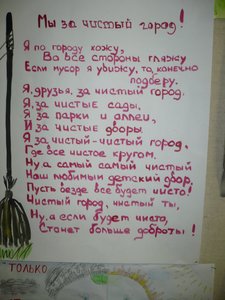 Мы за чистый город!
Я по городу хожу,
Во все стороны гляжу
Если мусор я увижу, то конечно
подберу.
Я, друзья, за чистый город.
Я, за чистые сады,
Я за парки и аллеи,
И за чистые дворы.
Я за чистый-чистый город,
Где все чистое кругом.
Ну а самый самый чистый
Наш любимый детский двор,
Пусть везде все будет чисто!
Чистый город, чистый ты,
Ну, а если будет чисто,
Станет больше доброты!
ТОЛЬКО